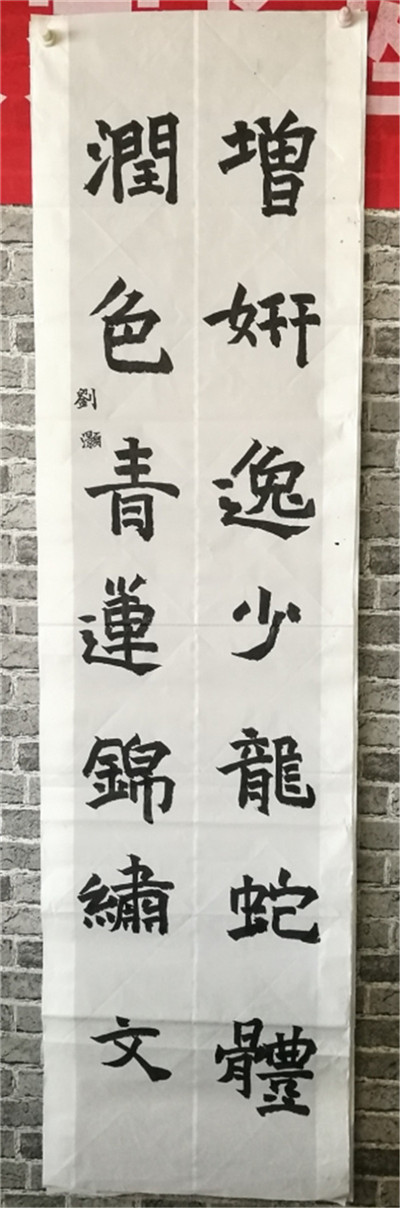 增妍逸少龍蛇體
潤色青蓮錦繡文
劉灝